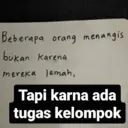 Beberapa orang menangis
bukan karena
mereka lemah,
Tapi karna ada
tugas kelompok